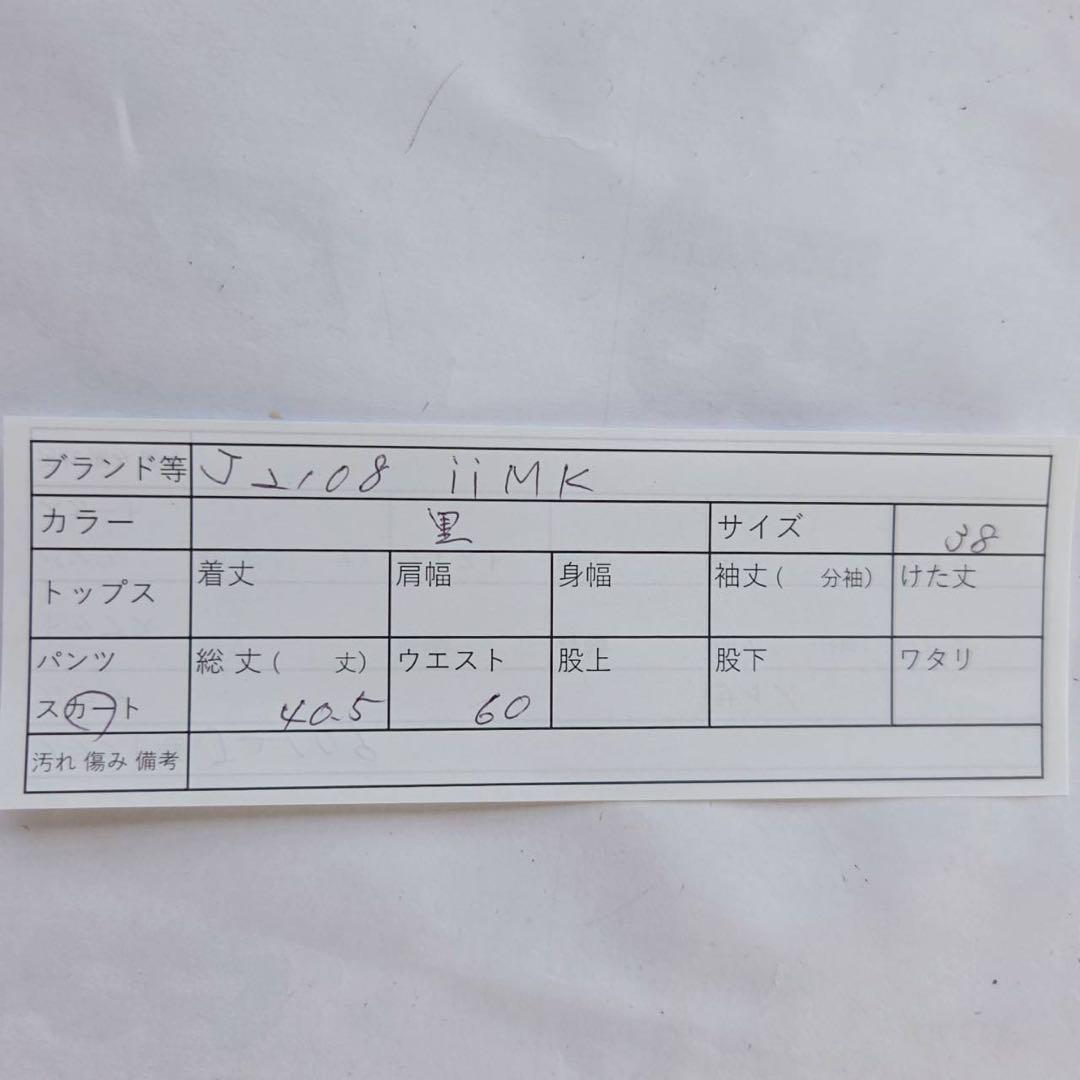 ブランド等 J2108 iiMK
カラー 黒 サイズ 38
トップス 着丈 肩幅 身幅 袖丈( 分袖) けた丈
パンツ 総丈( 丈) ウエスト 股上 股下 ワタリ
スカート 40.5 60
汚れ 傷み 備考